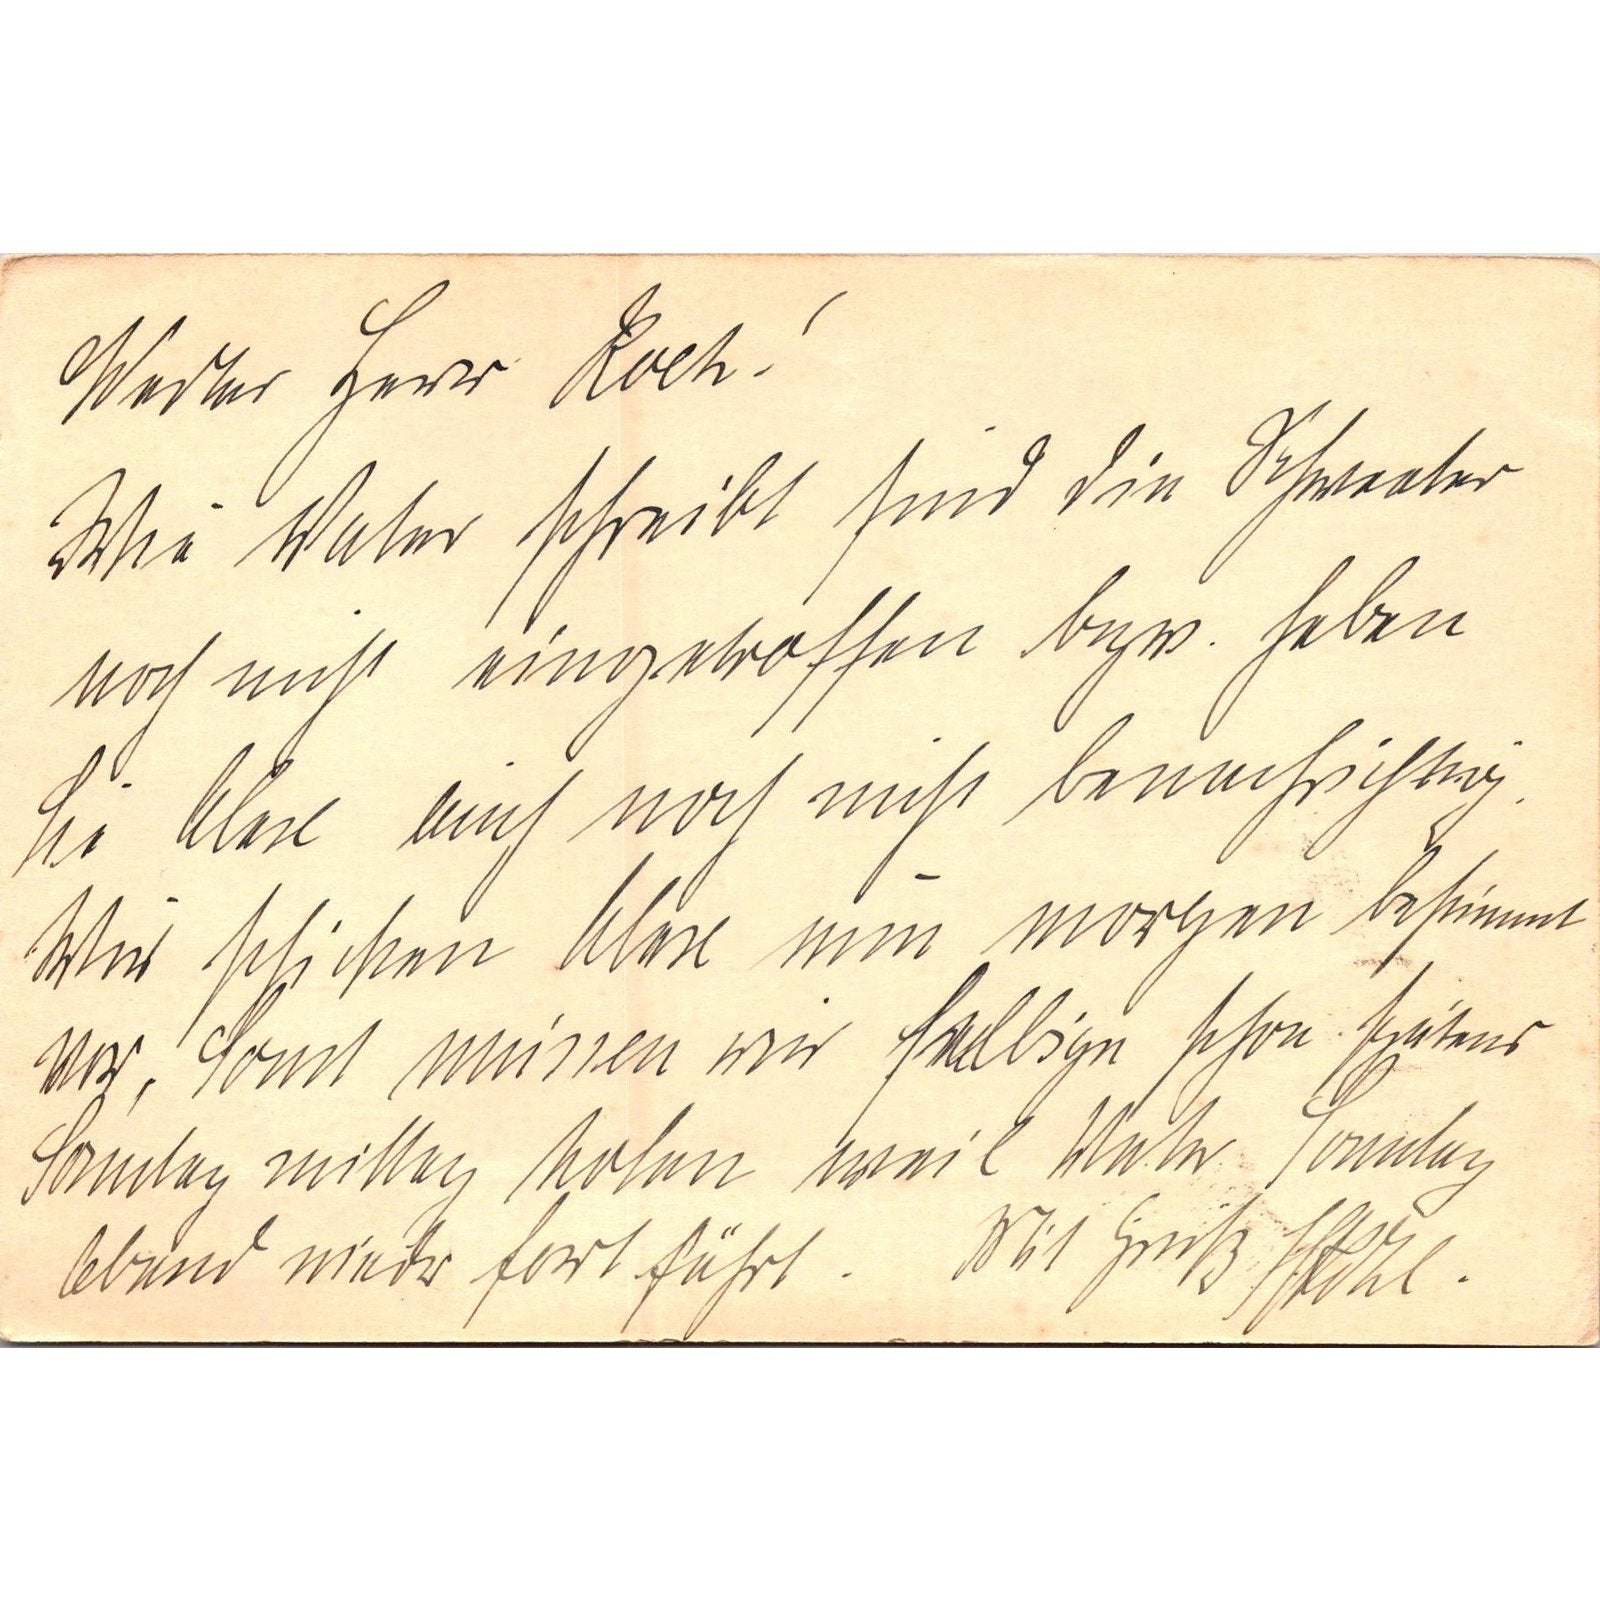 Werter Herr Koch!
Wie Vater schreibt sind die Schweater
noch nicht eingetroffen bezw. haben
Sie Alex auch noch nicht benachrichtig.
Wir schicken Alex nun morgen bestimmt
vor, Sonst müssen wir selbige schon spätens
Sonntag mittag holen weil Vater Sonntag
Abend wieder fort fährt. Mit Gruß